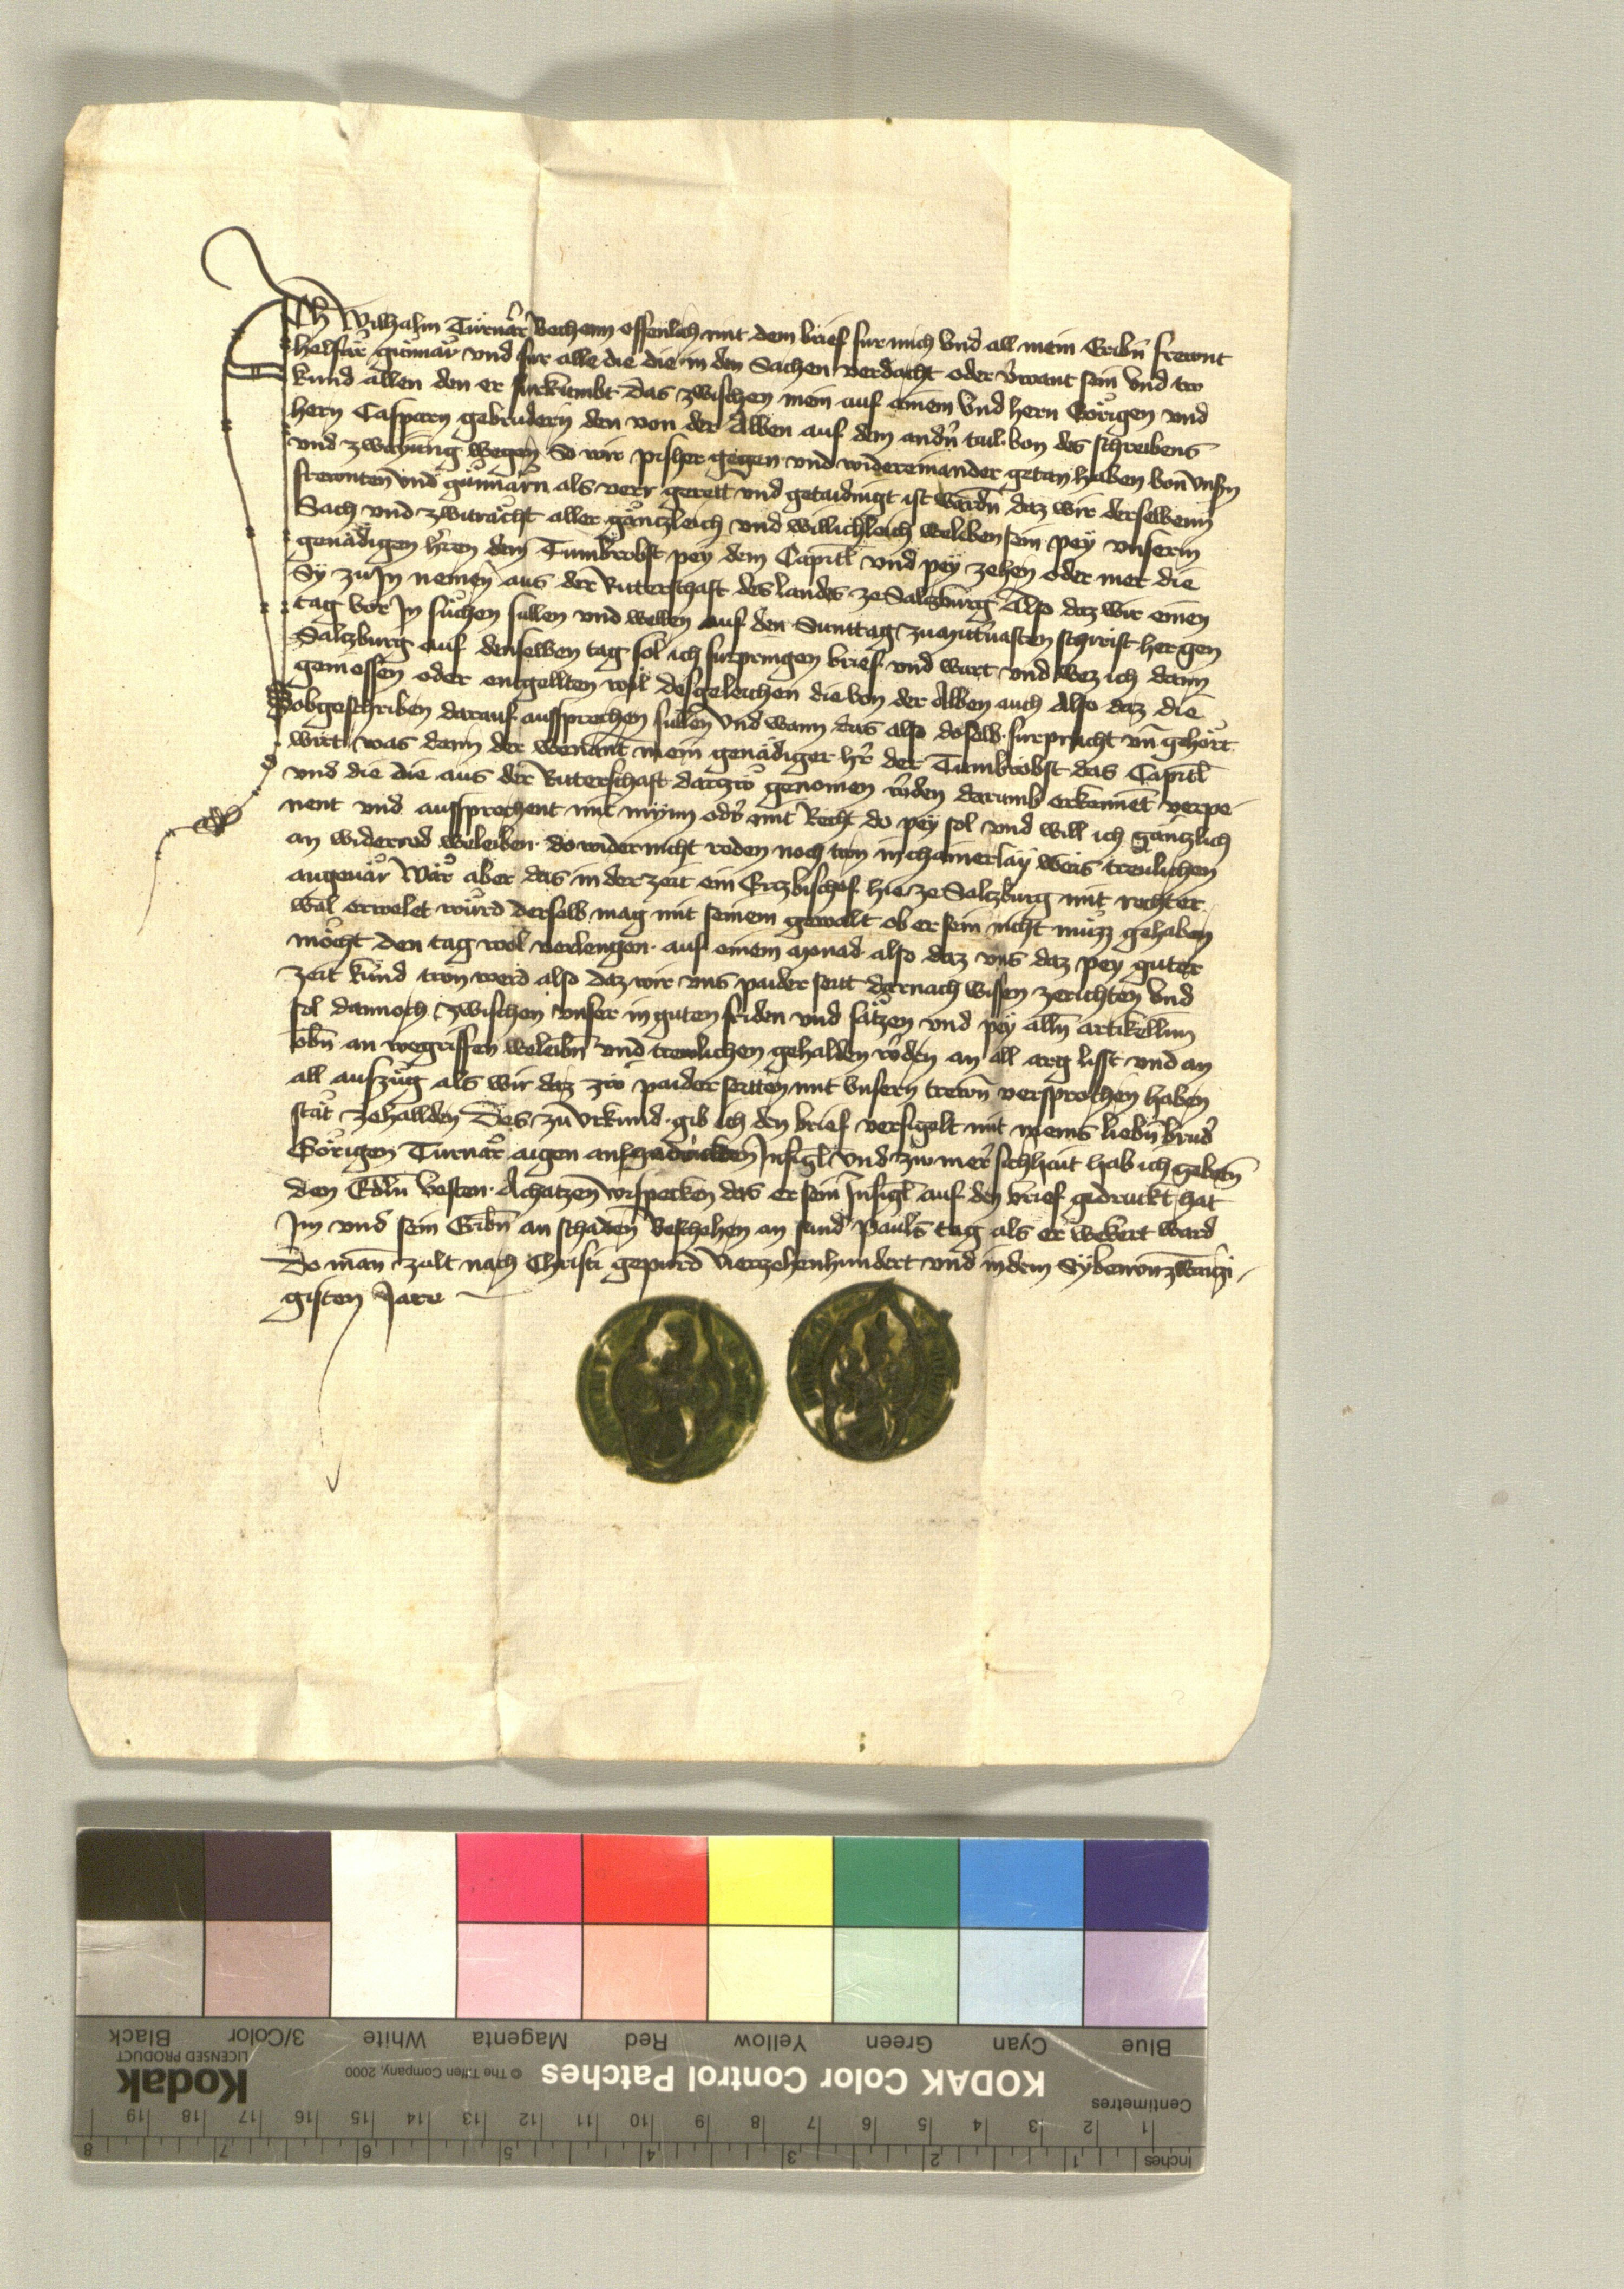 Ich Wilhalm Turnar Vechenn offenlich mit dem brief fur mich vnd all mein Eribn̄ frewnt
helffar gunnar vnd fur alle die die in den Sachen verdacht oder v̓want sein vnd tw
kund allen den er furkumbt das zwischen mein auf ainem vnd hern Gorigen vnd
hern Caspern gebrudern den von der Alben auf dem andn̓ tail von des schreibens
vnd zwayung wegen So wir pisher gegen vnd widereinander getan haben von vnsn̄
frewnten vnd gunnarn als verr gerett vnd getaidingt ist wardn̄ daz wir derselbenn
Sach vnd zwitracht aller gantzleich vnd willichleich weleiben sein pey vnserm
genadigen hr̓en dem Tumbrobst pey dem Capitl vnd pey zehen oder mer die
Sy zu In nemen aus der Ritterschaft des landes ze Salczburg Also daz wir einen
tag vor In suchen sullen vnd wellen auf den Sunttag zu mittuasten schirist her gen
Salczburg auf denselben tag sol ich furpringen brief vnd wart vnd wez ich dann
geniessen oder engellten wil desgeleichen die von der Alben auch Also daz die
obgeschriben darauf aussprechen sullen vnd wann das also doselb furpracht vn̄ gehort
wirt was dann der wenant mein genadiger hr̓ der Tumbrobst das Capitl
vnd die die aus der Ritterschaft darzw genomen w̓den darumb erkennēt verpe-
nent vnd aussprechent mit mynn od̓ mit Recht do pey sol vnd will ich gantzlich
an widerred weleiben do wider nicht reden noch tun in chainerlay weis trewlichen
angeuar War aber das in der zeit ein Erczbischof hie ze Salczburg mit rechter
wal erwelet wurd derselb mag mit seinem gewalt ob er sein nicht muzz gehaben
mocht den tag wol verlengen auf einem monad also daz vns daz pey guter
zeit kund tun werd also daz wir vns paider seitt darnach wissen ze richten vnd
sol dannoch zwischen vnser in guten friden vnd satzen vnd pey alln̄ artikellnn
obn̄ an wegriffen weleibn̄ vnd trewlichen gehalden w̓den an all arg list vnd an
all auszug als wir daz zw paider seitten mit vnsern trewn̄ versprochen haben
stat zehallden Des zu vrkund gib ich den brief versigelt mit meins liebn̄ brud̓
Gorigen Turnar aigen aufgedruckten Insigl vnd zw mer̓ sichhait hab ich gebetn̄
den Edln̄ vesten Achatzen wispecken das er sein Insigl auf den brief gedruckt hat
Im vnd sein Eribn̄ an schaden Beschehen an sand Pauls tag als er wekert ward
Do man zalt nach Christi gepurd vierzehenhundert vnd in dem Sybenvnzwaizi-
gisten Jare
KODAK Color Control Patches
© The Tiffen Company, 2000
Kodak
LICENSED PRODUCT
Blue Cyan Green Yellow Red Magenta White 3/Color Black
Centimetres
1 2 3 4 5 6 7 8 9 10 11 12 13 14 15 16 17 18 19
Inches
1 2 3 4 5 6 7 8